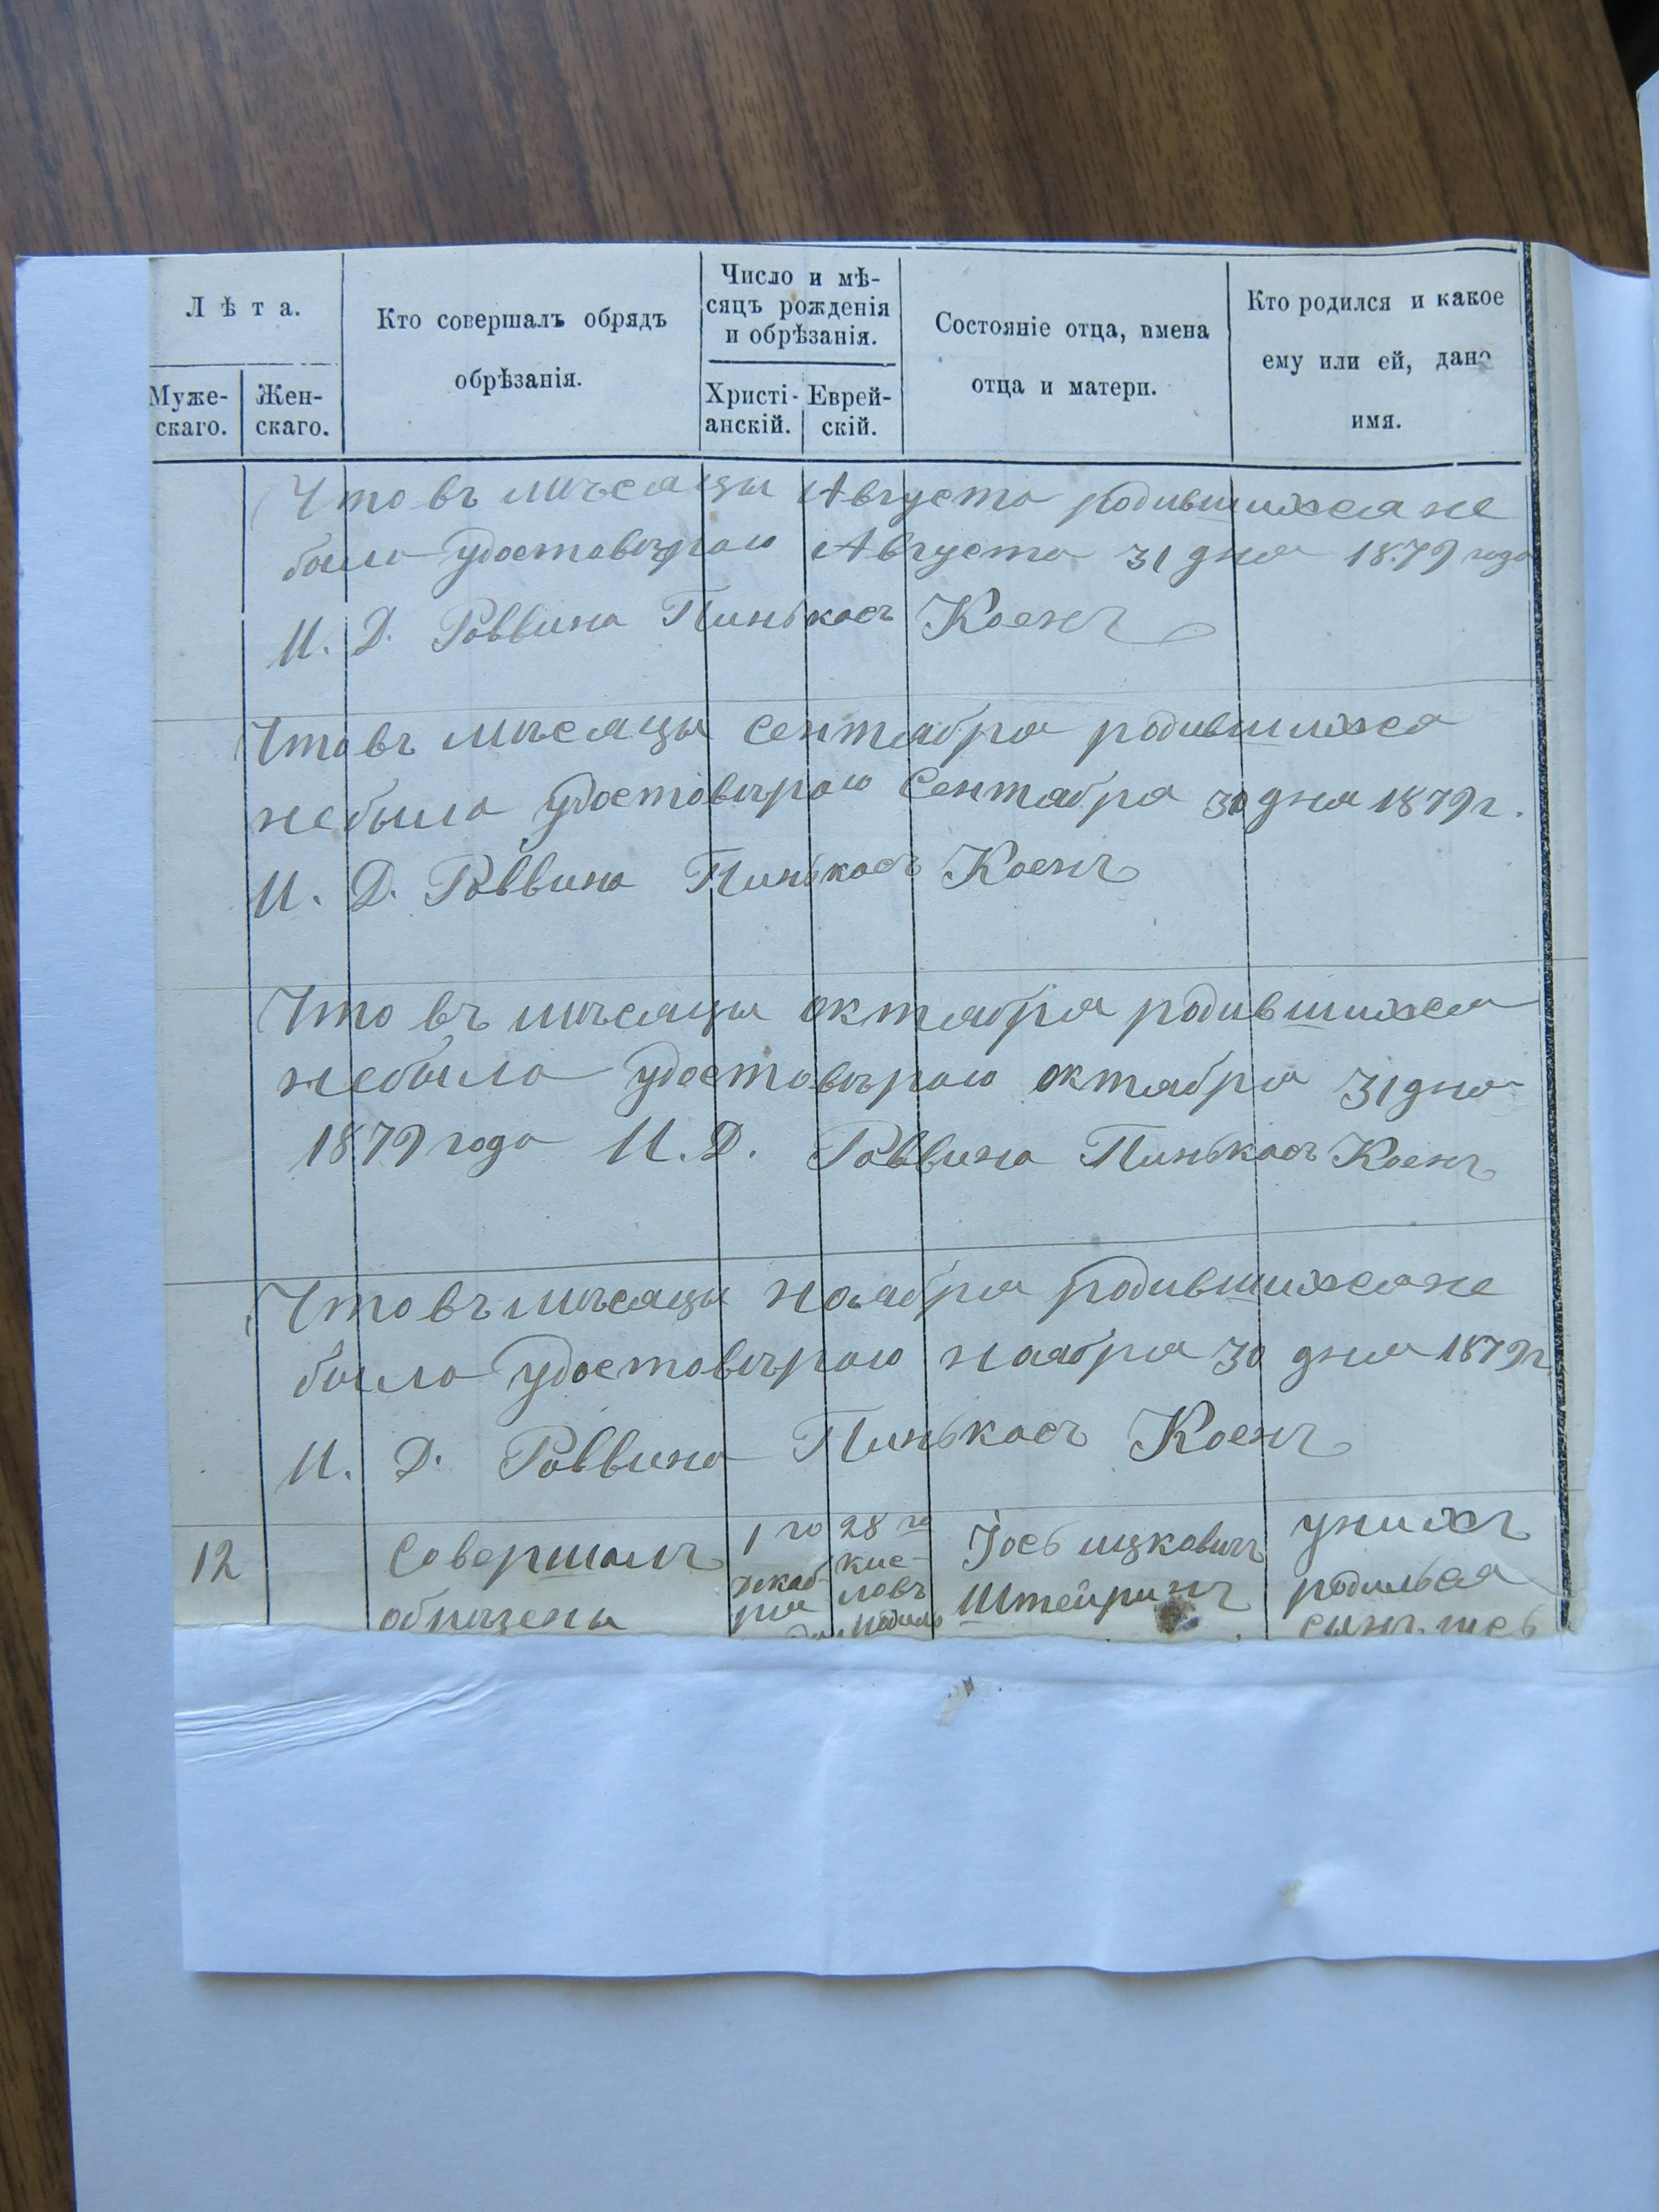 Лѣта.
Муже-
скаго.
Жен-
скаго.
Кто совершалъ обрядъ
обрѣзанія.
Число и мѣ-
сяцъ рожденія
и обрѣзанія.
Христі-
анскій.
Еврей-
скій.
Состояніе отца, имена
отца и матери.
Кто родился и какое
ему или ей, дано
имя.
Что въ мѣсяцы Августа родившихся не
было удостовѣраю Августа 31 дня 1879 года
И. Д. Раввина Пинькасъ Коенъ
Что въ мѣсяцы Сентября родившихся
небыло удостовѣраю Сентября 30 дня 1879 г.
И. Д. Раввина Пинькасъ Коенъ
Что въ мѣсяцы октября родившихся
небыло удостовѣраю октября 31 дня
1879 года И. Д. Раввина Пинькасъ Коенъ
Что въ мѣсяцы ноября родившихся не
было удостовѣраю ноября 30 дня 1879 г
И. Д. Раввина Пинькасъ Коенъ
12
Совершалъ
обрѣзены
1 го
декаб-
ря
28 го
кис-
ловъ
Іось ицковичъ
Штейринъ
унихъ
родилься
сынъ